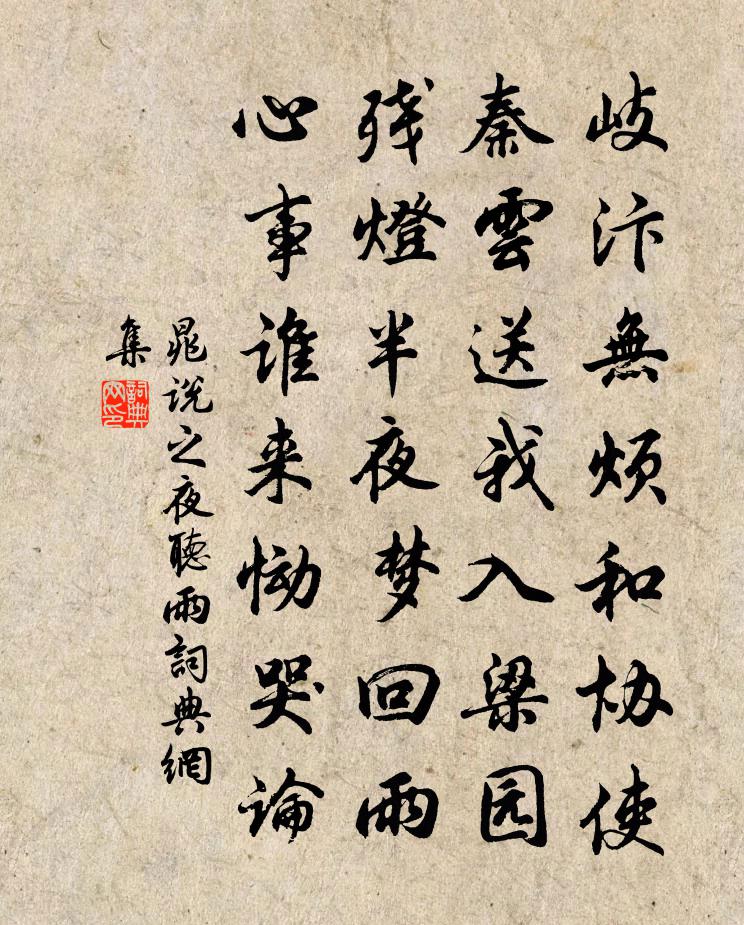 岐汴無烦和协使
秦雲送我入梁园
残燈半夜梦回雨
心事谁来恸哭论
晁说之夜聽雨詞典網
集
詞典
网印